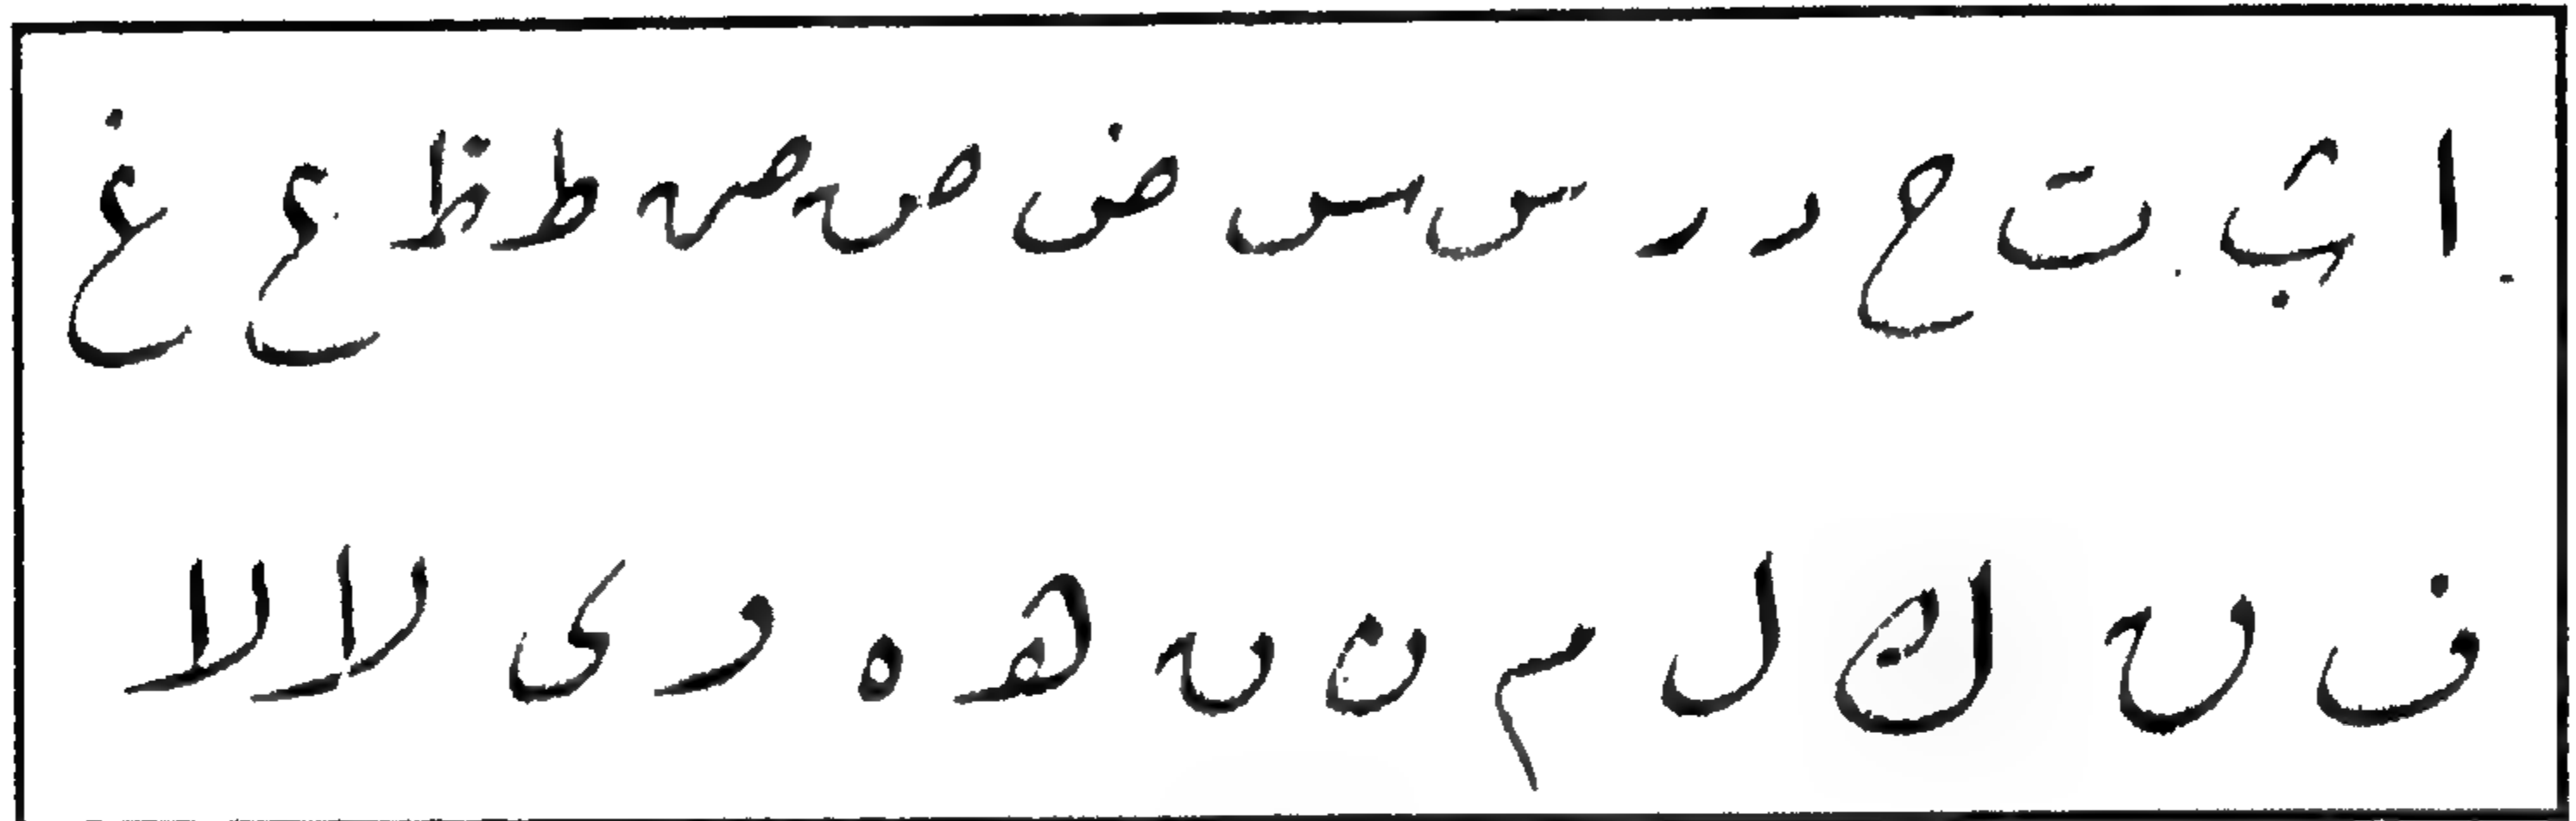 ا ث ت ح د ر س س ض ص ص ط ظ ع غ
ف ں ك ل م ن ں ه ه و ى لا لا